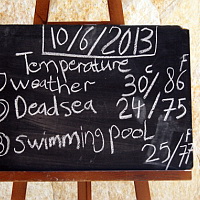 10/6/2013
Temperature
C F
weather 30/86
2) Deadsea 24/75
3) swimming pool F
25/77